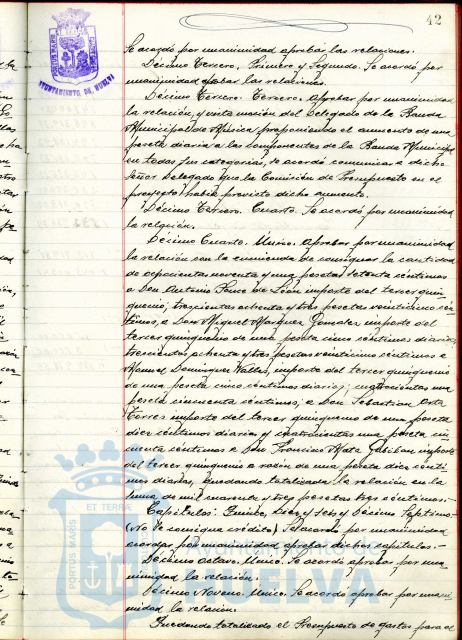 42
AYUNTAMIENTO DE HUELVA
Se acordó por unanimidad aprobar las relaciones.
Décimo Tercero, Primero y Segundo. Se acordó por
unanimidad aprobar las relaciones.
Décimo Tercero. Tercero. Aprobar por unanimidad
la relación, y vista moción del Delegado de la Banda
Municipal de Música proponiendo el aumento de una
peseta diaria a los componentes de la Banda Municipal
en todas sus categorías, se acordó comunicar a dicho
Señor Delegado que la Comisión de Presupuesto en el
proyecto había previsto dicho aumento.
Décimo Tercero. Cuarto. Se acordó por unanimidad
la relación.
Décimo Cuarto. Único. Aprobar por unanimidad
la relación con la enmienda de consignar la cantidad
de ochocientas noventa y una pesetas setenta céntimos
a Don Antonio Ponce de León importe del tercer quin-
quenio; trescientas ochenta y tres pesetas veinticinco cén-
timos, a Don Miguel Marquez Gonzalez importe del
tercer quinquenio de una peseta cinco céntimos diarios;
trescientas ochenta y tres pesetas veinticinco céntimos a
Manuel Dominguez, importe del tercer quinquenio
de una peseta cinco céntimos diarios; cuatrocientas una
peseta cincuenta céntimos, a Don Sebastian Orta
Torres importe del tercer quinquenio de una peseta
diez céntimos diarios y cuatrocientas una peseta cin-
cuenta céntimos a Don Francisco Mata importe
del tercer quinquenio a razón de una peseta diez cénti-
mos diarios, quedando totalizada la relación en la
suma de mil cuarenta y tres pesetas tres céntimos.-
Capítulos: Quince, Diez y Seis y Décimo Septimo-
(No se consigna crédito) Se acordó por unanimidad
acordar por unanimidad aprobar dichos capítulos.-
Décimo Octavo. Único. Se acordó aprobar por una-
nimidad la relación.
Décimo Noveno. Único. Se acordó aprobar por unani-
midad la relación.
Quedando totalizado el Presupuesto de gastos para el
PORTUS MARIS ET TERRAE
Ayuntamiento de
HUELVA